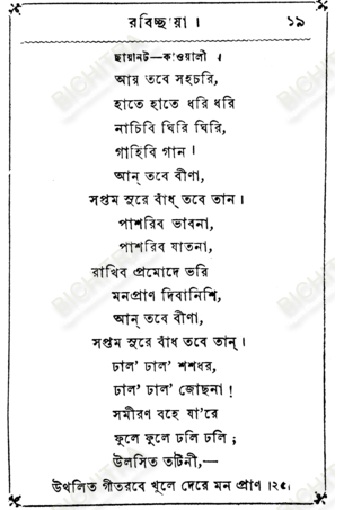 রবিচ্ছায়া । ১৯
ছায়ানট—কাওয়ালী ।
আয় তবে সহচরি,
হাতে হাতে ধরি ধরি
নাচিবি ঘিরি ঘিরি,
গাহিবি গান !
আন্ তবে বীণা,
সপ্তম সুরে বাঁধ্ তবে তান ।
পাশরিব ভাবনা,
পাশরিব যাতনা,
রাখিব প্রমোদে ভরি
মনপ্রাণ দিবানিশি,
আন্ তবে বীণা,
সপ্তম সুরে বাঁধ তবে তান্ ।
ঢাল' ঢাল' শশধর,
ঢাল' ঢাল' জোছনা !
সমীরণ বহে যা'রে
ফুলে ফুলে ঢলি ঢলি ;
উলসিত তটিনী,—
উথলিত গীতরবে খুলে দেরে মন প্রাণ ॥২৫।
BICHITRA
BICHITRA
BICHITRA
BICHITRA